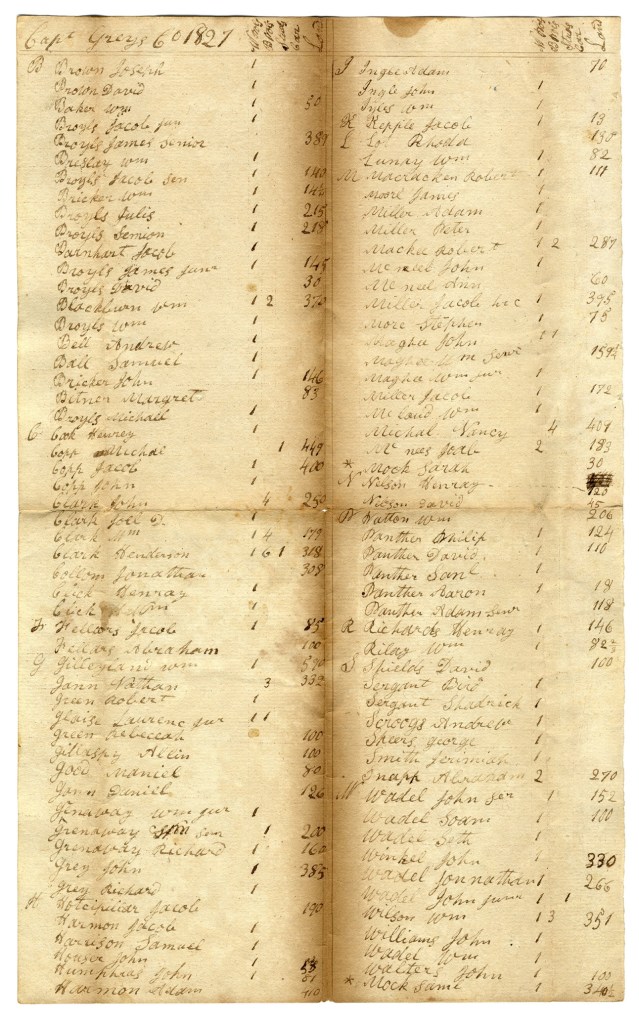 Capt Greys Co 1827 Land
B Brown Joseph 1
Brown David 1
Baker Wm 1 50
Broyls Jacob jun 1
Broyls James senior 389
Brisley Wm 1
Broyls Jacob sen 1 140
Bricker Wm 1
Broyls Julis 1 215
Broyls Semion 1 218
Barnhart Jacob 1
Broyls James junr 1 145
Broyls David 30
Blackburn Wm 1 2 370
Broyls Wm 1
Bell Andrew 1
Ball Samuel 1
Bricker John 1 146
Bitner Margret 83
Broyls Michael 1
C Cook Henrey 1
Copp Michal 1 449
Copp Jacob 1 400
Copp John 1
Clark John 4 250
Clark Joel D. 1
Clark Wm 1 4 179
Clark Henderson 1 6 1 318
Collom Jonathan 308
Click Henray 1
Click Adam 1
F Fellars Jacob 1 85
Fellars Abraham 100
G Gilleylan Wm 1
Jann Nathan 3 332
Green Robert 1
Glaize Laurenc jur 1 1
Green Rebeccah 100
Gillaspy Allein 100
Good Maniel 80
Jonn Daniel 126
Wm jur 1
Grenaway sen 1 200
Grenaway Richard 1 160
Grey John 1 385
Grey Richard 1
H Jacob 190
Harmon Jacob 1
Harrison Samuel 1
Houser John 1
Humphras John 1 58
Harmon Adam
Land
J Ingle Adam 70
Ingle John 1
Iyles Wm 1
K Kepple Jacob 1 13
L Lot Rhoda 130
Lunay Wm 1 82
M MacCracken Robert 1 111
Moore James 1
Miller Adam 1
Miller Peter 1
Mackee Robert 1 2 287
Mc neel John 1
Mc neal Ann 60
Miller Jacob 1 395
More Stephen 1 75
Magha John 1
Magha Wm Senr
Magha Wm jur 1
Miller Jacob 1 172
Mc loud Wm 1
Michal Nancy 4 401
Mc nees Joab 2 183
* Mock Sarah 30
N Nilson Henray 120
Nilson David 45
P Patton Wm 206
Panther Philip 1 124
Panther David 1 110
Panther Saml 1
Panther Aaron 1 18
Panther Adam senr 118
R Richards Henray 1 146
Rilay Wm 1 82½
S Shields David 100
Sergant Bird 1
Sergant Shadrick 1
Scroogs Andrew 1
Sheers george 1
Smith Jerimiah 1
Snapp Abraham 2 270
W Wadel John ser 1 152
Wadel Soam 1 100
Wadel Seth 1
Winkel John 1 330
Wadel Jonnathan 1 266
Wadel John junr 1 1
Wilson Wm 1 3 351
Williams John 1
Wadel Wm 1
Walters John 1 100
* Mock Saml 1